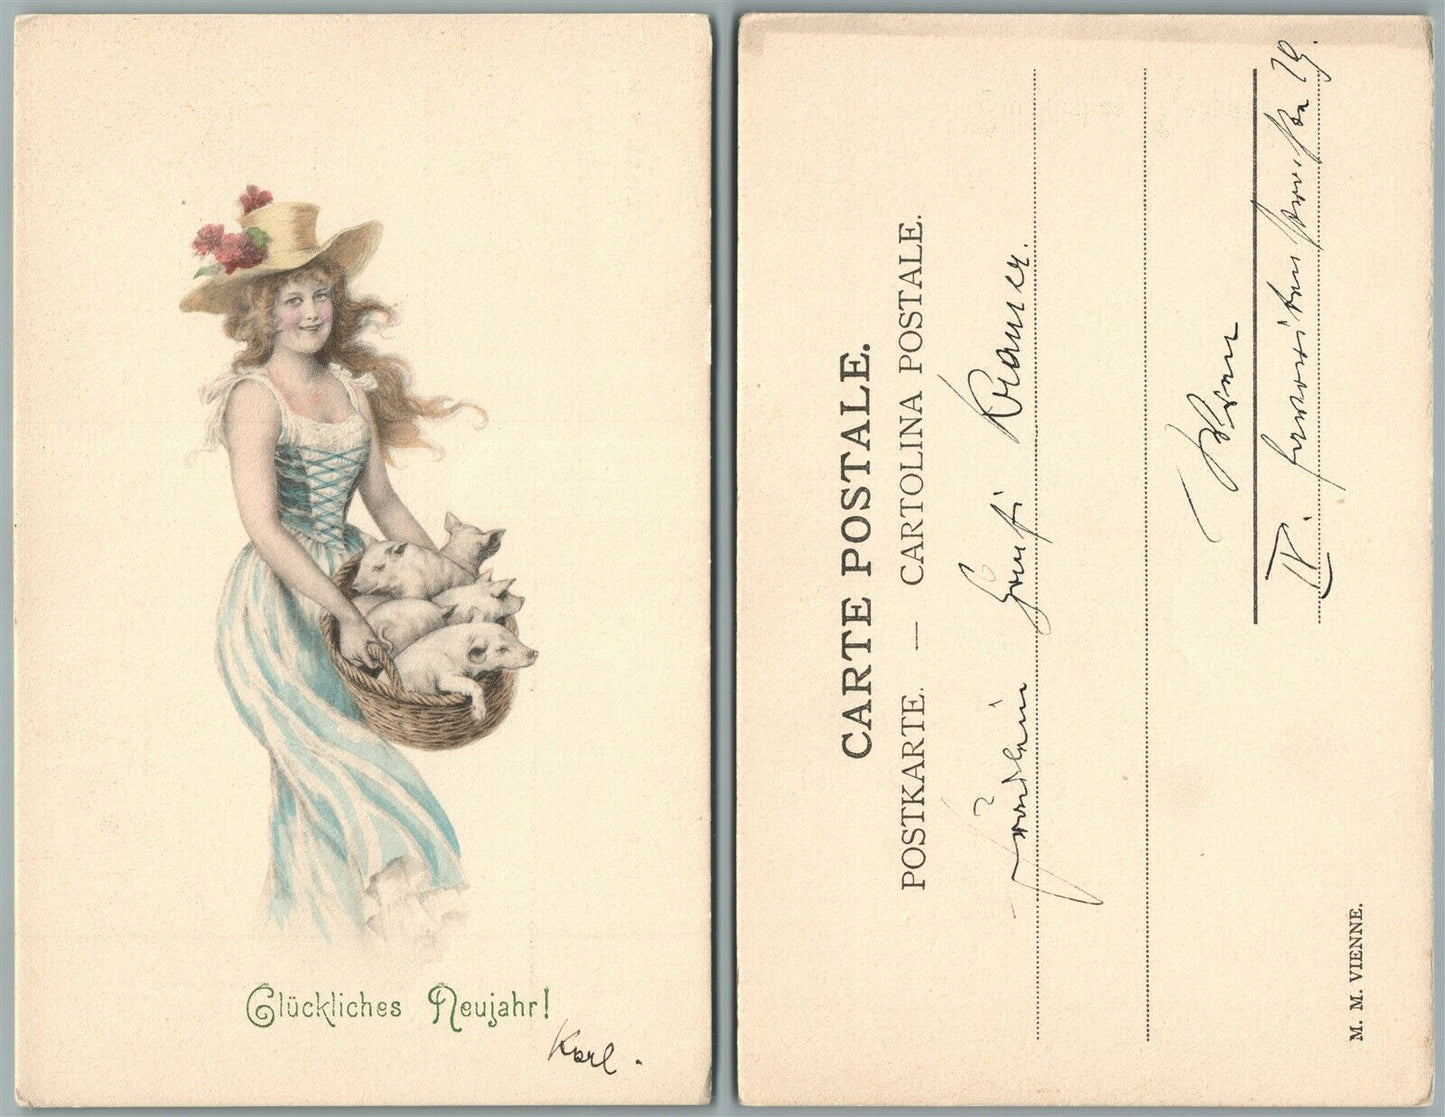 Glückliches Neujahr!
Karl.
CARTE POSTALE.
POSTKARTE. — CARTOLINA POSTALE.
Fräulein Kramer.
Wien
IV. Favoritenstrasse 29.
M. M. VIENNE.